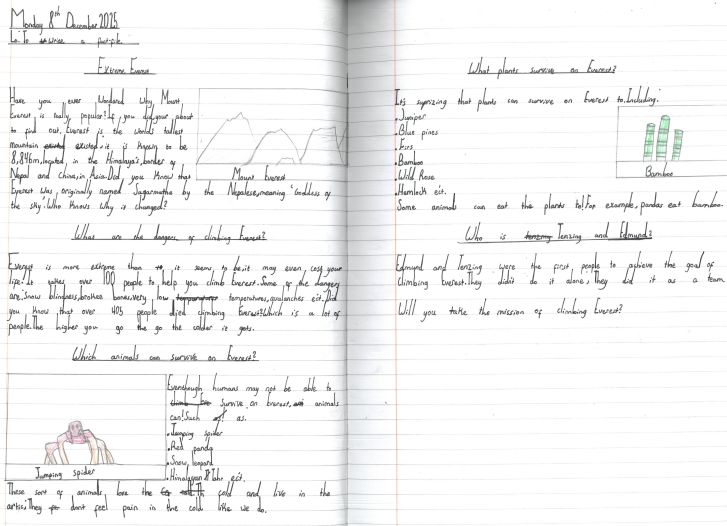 Monday 8th December 2025
L.O: To write a fact-file.
Extreme Everest
Have you ever wondered why Mount
Everest is really popular? If you did, your about
to find out. Everest is the worlds tallest
mountain existed. it is known to be
8,846m, located, in the Himalaya's, border of
Nepal and China, in Asia. Did you know that
Everest was originally named 'Sagarmatha' by the Nepalese, meaning 'Goddess of
the sky'. Who knows why it changed?
Mount Everest
What are the dangers of climbing Everest?
Everest is more extreme than it seems to be. it may even, cost your
life. It takes over 100 people to help you climb Everest. Some of the dangery
are, Snow blindness, broken bones, very low temperatures, avalanches eit. Did
you know that over 405 people died climbing Everest? Which is a lot of
people. The higher you go the go the colder it gets.
Which animals can survive on Everest?
Eventhough humans may not be able to
survive on Everest, animals
can! Such as.
• Jumping spider
• Red panda
• Snow leopard
• Himalayan Tahr eit.
Jumping spider
These sort of animals love the cold and live in the
artic. They dont feel pain in the cold like we do.
What plants survive on Everest?
It's suprizing that plants can survive on Everest to. Including:
• Juniper
• Blue pines
• Firs
• Bamboo
• Wild Rose
Hemlock eit.
Bamboo
Some animals can eat the plants to! For example, pandas eat bamboo.
Who is Tenzing and Edmund?
Edmund and Tenzing were the first people to achieve the goal of
climbing Everest. They didit do it alone, They did it as a team.
Will you take the mission of climbing Everest?